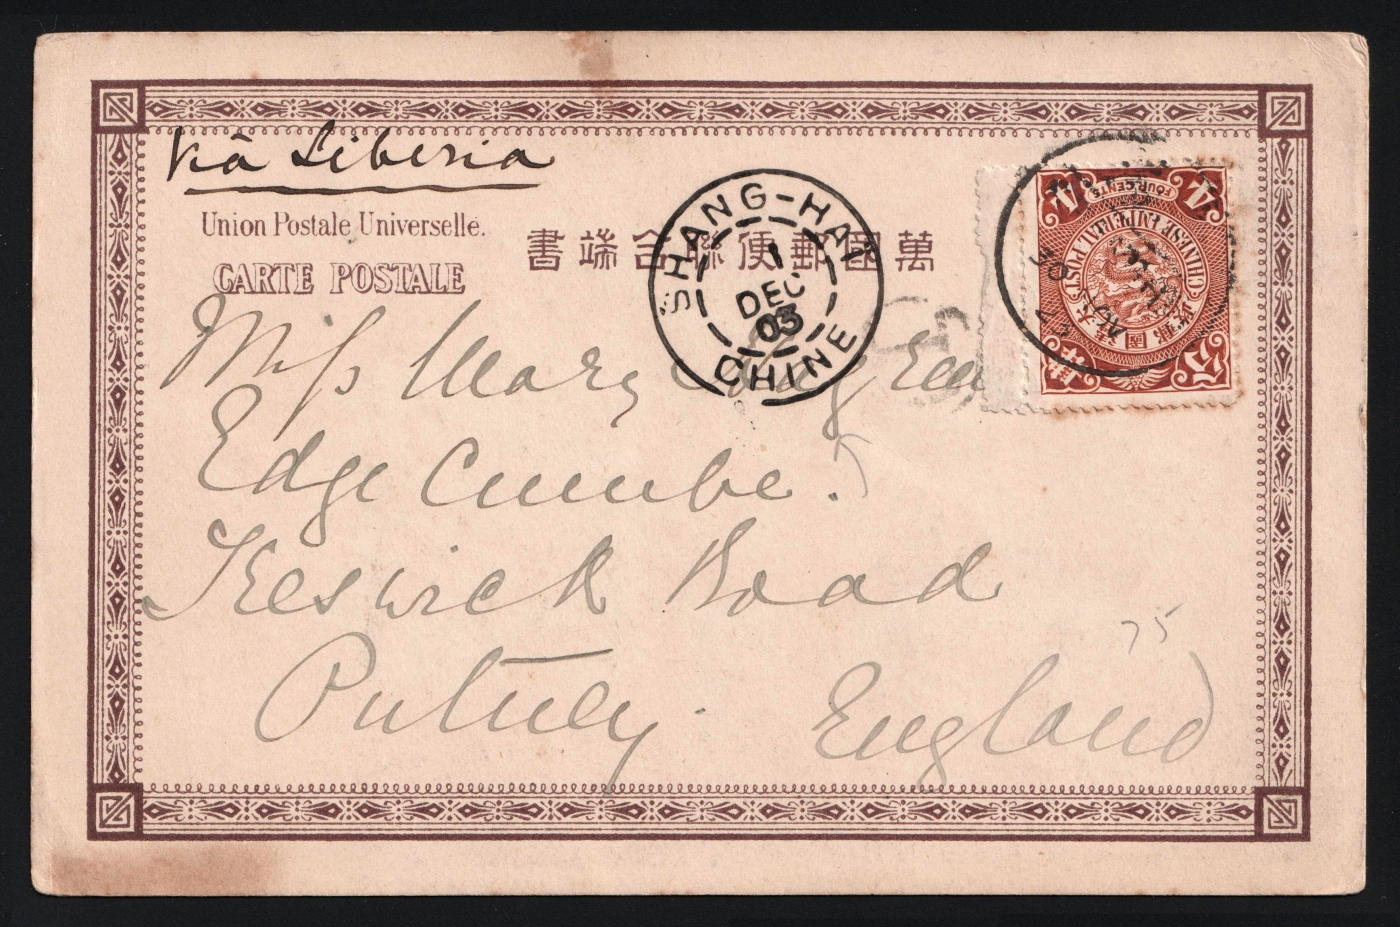 Viâ Siberia
Union Postale Universelle.
CARTE POSTALE
萬國郵便聯合端書
SHANG-HAI
1
DEC
03
CHINE
Miss Mary
Edge Cumbe.
Keswick Road
Putney.
England
75
CHINESE IMPERIAL POST
大清國郵政
4 4
FOUR CENTS